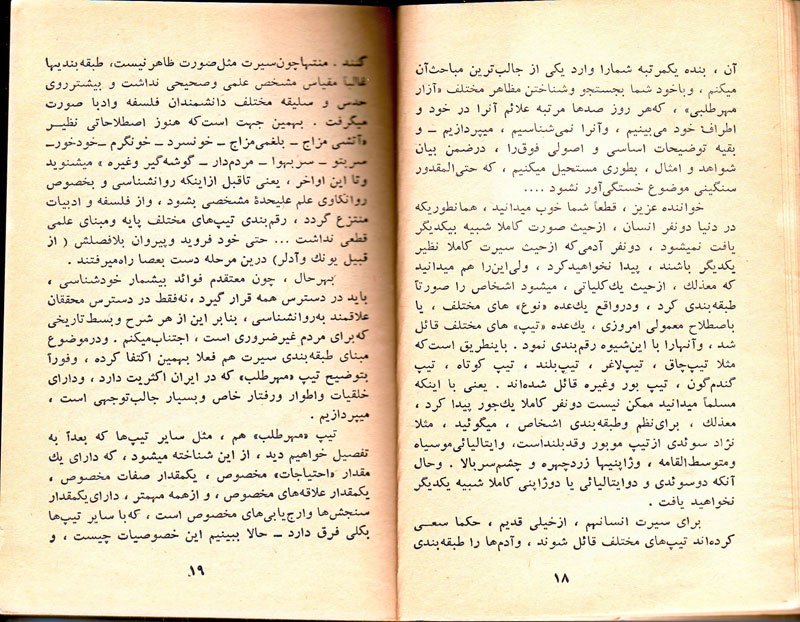 آن ، بنده یکمرتبه شمارا وارد یکی از جالب‌ترین مباحث‌آن
میکنم ، وباخود شما بجستجو وشناختن مظاهر مختلف «آزار
مهرطلبی» ، که‌هر روز صدها مرتبه علائم آنرا در خود و
اطراف خود می‌بینیم ، وآنرا نمی‌شناسیم ، میپردازیم ـ و
بقیه توضیحات اساسی و اصولی فوق‌را ، درضمن بیان
شواهد و امثال ، بطوری مستحیل میکنیم ، که حتی‌المقدور
سنگینی موضوع خستگی‌آور نشود ....
خواننده عزیز ، قطعاً شما خوب میدانید ، همانطوریکه
در دنیا دونفر انسان ، ازحیث صورت کاملا شبیه بیکدیگر
یافت نمیشود ، دونفر آدمی‌که ازحیث سیرت کاملا نظیر
یکدیگر باشند ، پیدا نخواهیدکرد ، ولی‌این‌را هم میدانید
که معذلك ، ازحیث یك‌کلیاتی ، میشود اشخاص را صورتاً
طبقه‌بندی کرد ، ودرواقع یك‌عده «نوع» های مختلف ، یا
باصطلاح معمولی امروزی ، یك‌عده «تیپ» های مختلف قائل
شد ، وآنهارا با این‌شیوه رقم‌بندی نمود . باینطریق است‌که
مثلا تیپ‌چاق ، تیپ‌لاغر ، تیپ‌بلند ، تیپ کوتاه ، تیپ
گندم‌گون ، تیپ بور وغیره قائل شده‌اند . یعنی با اینکه
مسلماً میدانید ممکن نیست دونفر کاملا یك‌جور پیدا کرد ،
معذلك ، برای‌نظم وطبقه‌بندی اشخاص ، میگوئید ، مثلا
نژاد سوئدی ازتیپ موبور وقدبلنداست، وایتالیائی‌موسیاه
ومتوسط‌القامه ، وژاپنیها زردچهره و چشم‌سربالا . وحال
آنکه دوسوئدی و دوایتالیائی یا دوژاپنی کاملا شبیه یکدیگر
نخواهید یافت .
برای سیرت انسانهم ، ازخیلی قدیم ، حکما سعی
کرده‌اند تیپ‌های مختلف قائل شوند ، وآدم‌ها را طبقه‌بندی
۱۸
کنند . منتهاچون‌سیرت مثل‌صورت ظاهرنیست، طبقه‌بندیها
غالباً مقیاس مشخص علمی وصحیحی نداشت و بیشترروی
حدس و سلیقه مختلف دانشمندان فلسفه وادبا صورت
میگرفت . بهمین جهت است‌که هنوز اصطلاحاتی نظیر
«آتشی مزاج ـ بلغمی‌مزاج ـ خونسرد ـ خونگرم ـ خودخور ـ
سربتو ـ سربهوا ـ مردم‌دار ـ گوشه‌گیر وغیره » میشنوید
وتا این اواخر ، یعنی تاقبل ازاینکه روانشناسی و بخصوص
روانکاوی علم علیحدهٔ مشخصی بشود ، واز فلسفه و ادبیات
منتزع گردد ، رقم‌بندی تیپ‌های مختلف پایه ومبنای علمی
قطعی نداشت ... حتی خود فروید وپیروان بلافصلش ( از
قبیل یونك وآدلر) درین مرحله دست بعصا راه‌میرفتند .
بهرحال ، چون معتقدم فوائد بیشمار خودشناسی ،
باید در دسترس همه قرار گیرد ، نه‌فقط در دسترس محققان
علاقمند به‌روانشناسی ، بنابر این از هر شرح وبسط تاریخی
که‌برای مردم غیرضروری است ، اجتناب‌میکنم . ودرموضوع
مبنای طبقه‌بندی سیرت هم فعلا بهمین اکتفا کرده ، وفورآ
بتوضیح تیپ «مهرطلب» که در ایران اکثریت دارد ، ودارای
خلقیات واطوار ورفتار خاص وبسیار جالب‌توجهی است ،
میپردازیم .
تیپ «مهرطلب» هم ، مثل سایر تیپ‌ها که بعدآ به
تفصیل خواهیم دید ، از این شناخته میشود ، که دارای یك
مقدار «احتیاجات» مخصوص ، یکمقدار صفات مخصوص ،
یکمقدار علاقه‌های مخصوص ، و ازهمه مهمتر ، دارای‌یکمقدار
سنجش‌ها وارج‌یابی‌های مخصوص است ، که‌با سایر تیپ‌ها
بکلی فرق دارد ـ حالا ببینیم این خصوصیات چیست ، و
۱۹